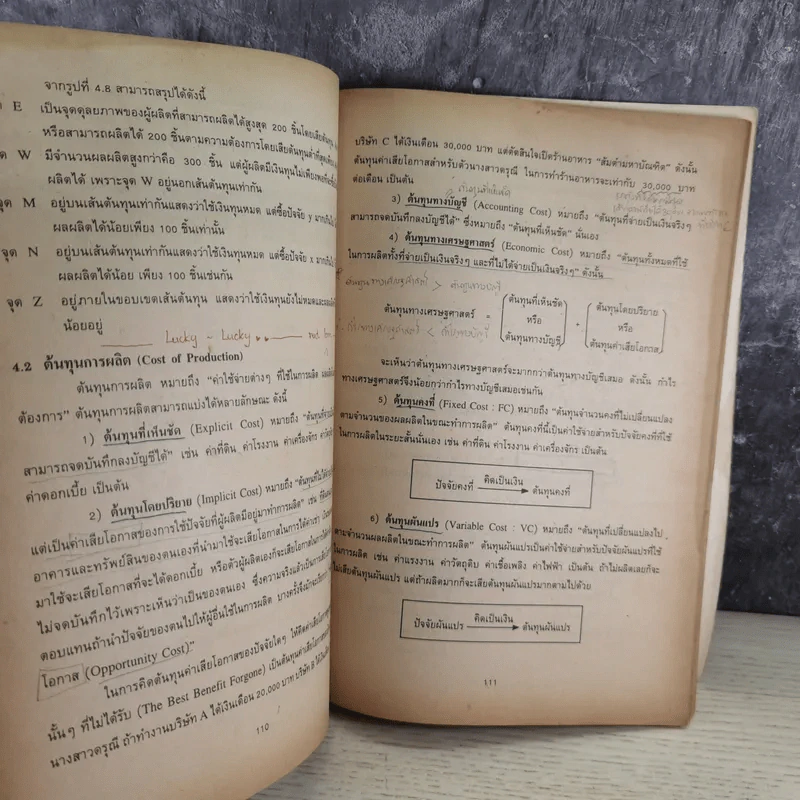 จากรูปที่ 4.8 สามารถสรุปได้ดังนี้
E เป็นจุดดุลยภาพของผู้ผลิตที่สามารถผลิตได้สูงสุด 200 ชิ้นโดยเสียต้นทุน
หรือสามารถผลิตได้ 200 ชิ้นตามความต้องการโดยเสียต้นทุนต่ำที่สุด
W มีจำนวนผลผลิตสูงกว่าคือ 300 ชิ้น แต่ผู้ผลิตมีเงินทุนไม่เพียงพอ
ผลิตได้ เพราะจุด W อยู่นอกเส้นต้นทุนเท่ากัน
จุด M อยู่บนเส้นต้นทุนเท่ากันแสดงว่าใช้เงินทุนหมด แต่ซื้อปัจจัย y มาก
ผลผลิตได้น้อยเพียง 100 ชิ้นเท่านั้น
จุด N อยู่บนเส้นต้นทุนเท่ากันแสดงว่าใช้เงินทุนหมด แต่ซื้อปัจจัย x มาก
ผลผลิตได้น้อย เพียง 100 ชิ้นเช่นกัน
จุด Z อยู่ภายในขอบเขตเส้นต้นทุน แสดงว่าใช้เงินทุนยังไม่หมดและ
น้อยอยู่
Lucky - Lucky
4.2 ต้นทุนการผลิต (Cost of Production)
ต้นทุนการผลิต หมายถึง "ค่าใช้จ่ายต่างๆ ที่ใช้ในการผลิต
ต้องการ" ต้นทุนการผลิตสามารถแบ่งได้หลายลักษณะ ดังนี้
1) ต้นทุนที่เห็นชัด (Explicit Cost) หมายถึง "ต้นทุนที่จ่าย
สามารถจดบันทึกลงบัญชีได้" เช่น ค่าที่ดิน ค่าโรงงาน ค่าเครื่องจักร ค่าวัตถุดิบ
ค่าดอกเบี้ย เป็นต้น
2) ต้นทุนโดยปริยาย (Implicit Cost) หมายถึง "ต้นทุนที่ไม่ได้
แต่เป็นค่าเสียโอกาสของการใช้ปัจจัยที่ผู้ผลิตมีอยู่มาทำการผลิต" เช่น
อาคารและทรัพย์สินของตนเองที่นำมาใช้จะเสียโอกาสในการได้ค่าเช่า
มาใช้จะเสียโอกาสที่จะได้ดอกเบี้ย หรือตัวผู้ผลิตเองก็จะเสียโอกาสในการ
ไม่จดบันทึกไว้เพราะเห็นว่าเป็นของตนเอง ซึ่งความจริงแล้วเป็นการ
ตอบแทนถ้านำปัจจัยของตนไปให้ผู้อื่นใช้ในการผลิต บางครั้งจึงมัก
โอกาส (Opportunity Cost)"
ในการคิดต้นทุนค่าเสียโอกาสของปัจจัยใดๆ ให้คิดค่าเสียโอกาส
นั้นๆ ที่ไม่ได้รับ (The Best Benefit Forgone) เป็นต้นทุนค่าเสียโอกาส
นางสาวดรุณี ถ้าทำงานบริษัท A ได้เงินเดือน 20,000 บาท บริษัท B
110
บริษัท C ได้เงินเดือน 30,000 บาท แต่ตัดสินใจเปิดร้านอาหาร "ส้มตำมหาบัณฑิต" ดังนั้น
ต้นทุนค่าเสียโอกาสสำหรับตัวนางสาวดรุณี ในการทำร้านอาหารจะเท่ากับ 30,000 บาท
ต่อเดือน เป็นต้น
3) ต้นทุนทางบัญชี (Accounting Cost) หมายถึง "ต้นทุนที่จ่ายเป็นเงินจริงๆ
สามารถจดบันทึกลงบัญชีได้" ซึ่งหมายถึง "ต้นทุนที่เห็นชัด" นั่นเอง
4) ต้นทุนทางเศรษฐศาสตร์ (Economic Cost) หมายถึง "ต้นทุนทั้งหมดที่ใช้
ในการผลิตทั้งที่จ่ายเป็นเงินจริงๆ และที่ไม่ได้จ่ายเป็นเงินจริงๆ" ดังนั้น
ต้นทุนทางเศรษฐศาสตร์ > ต้นทุนทางบัญชี
ต้นทุนทางเศรษฐศาสตร์ = (ต้นทุนที่เห็นชัด หรือ ต้นทุนทางบัญชี) + (ต้นทุนโดยปริยาย หรือ ต้นทุนค่าเสียโอกาส)
กำไรทางเศรษฐศาสตร์ < กำไรทางบัญชี
จะเห็นว่าต้นทุนทางเศรษฐศาสตร์จะมากกว่าต้นทุนทางบัญชีเสมอ ดังนั้น กำไร
ทางเศรษฐศาสตร์จึงน้อยกว่ากำไรทางบัญชีเสมอเช่นกัน
5) ต้นทุนคงที่ (Fixed Cost : FC) หมายถึง "ต้นทุนจำนวนคงที่ไม่เปลี่ยนแปลง
ตามจำนวนของผลผลิตในขณะทำการผลิต" ต้นทุนคงที่นี้เป็นค่าใช้จ่ายสำหรับปัจจัยคงที่ที่ใช้
ในการผลิตในระยะสั้นนั่นเอง เช่น ค่าที่ดิน ค่าโรงงาน ค่าเครื่องจักร เป็นต้น
ปัจจัยคงที่ คิดเป็นเงิน ต้นทุนคงที่
6) ต้นทุนผันแปร (Variable Cost : VC) หมายถึง "ต้นทุนที่เปลี่ยนแปลงไป
ตามจำนวนผลผลิตในขณะทำการผลิต" ต้นทุนผันแปรเป็นค่าใช้จ่ายสำหรับปัจจัยผันแปรที่ใช้
ในการผลิต เช่น ค่าแรงงาน ค่าวัตถุดิบ ค่าเชื้อเพลิง ค่าไฟฟ้า เป็นต้น ถ้าไม่ผลิตเลยก็จะ
ไม่เสียต้นทุนผันแปร แต่ถ้าผลิตมากก็จะเสียต้นทุนผันแปรมากตามไปด้วย
ปัจจัยผันแปร คิดเป็นเงิน ต้นทุนผันแปร
111